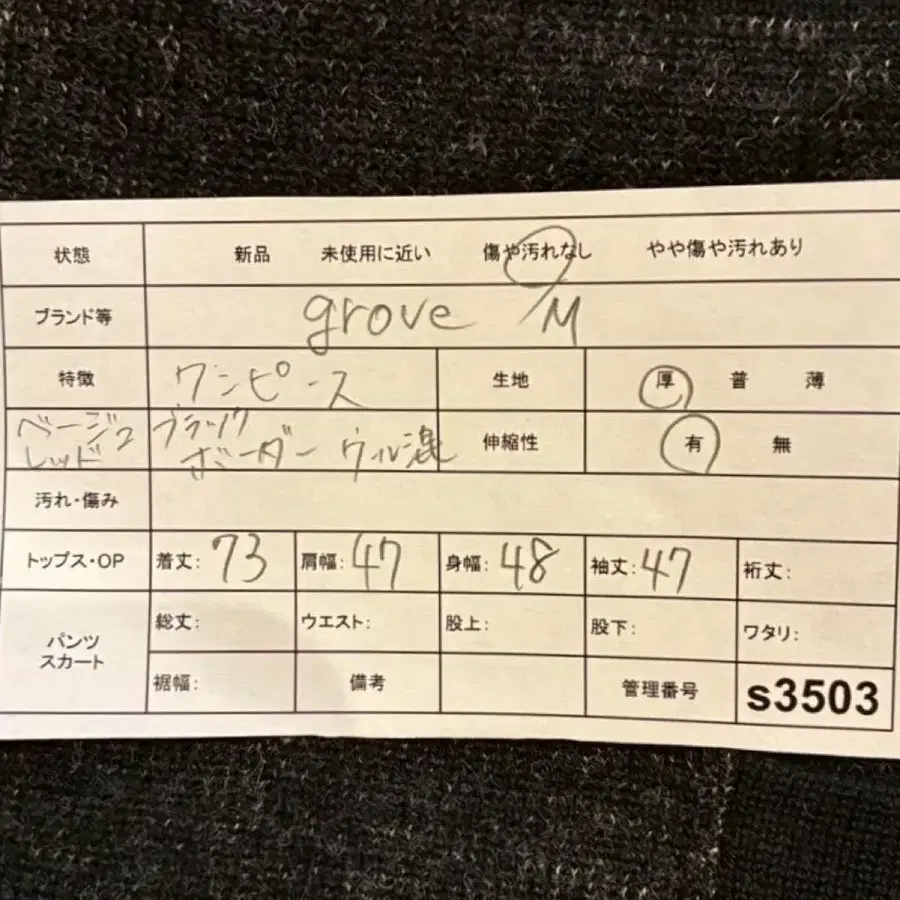 状態 新品 未使用に近い 傷や汚れなし やや傷や汚れあり
ブランド等 grove /M
特徴 ワンピース 生地 厚 普 薄
ベージュ ブラック
レッド ボーダー ウール混 伸縮性 有 無
汚れ・傷み
トップス・OP 着丈: 73 肩幅: 47 身幅: 48 袖丈: 47 裄丈:
パンツ スカート 総丈: ウエスト: 股上: 股下: ワタリ:
裾幅: 備考 管理番号 s3503